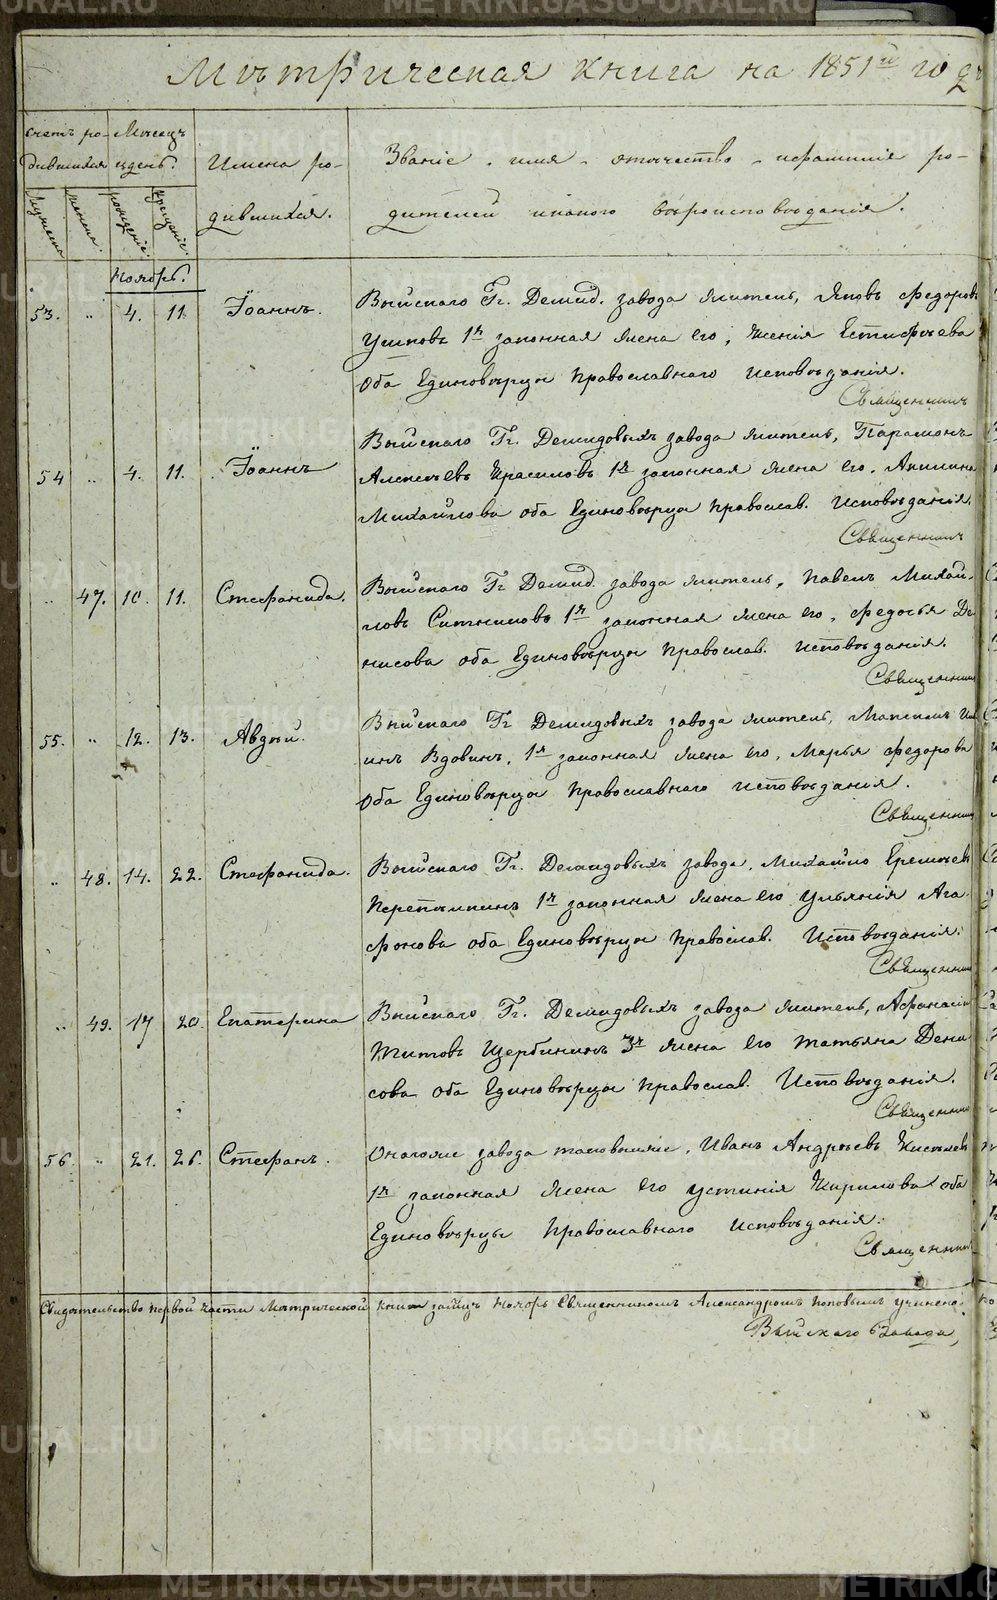 Мѣтрическая книга на 1851й годъ
Счетъ ро-
дившихся
Мѣсяцъ
и день.
Имена ро-
дившихся.
Званіе, имя, отечество, и фамилія ро-
дителей и какого вѣроисповѣданія.
мужеска
женска.
рожденіе.
крещеніе.
Ноябрь.
53. " 4. 11 Іоаннъ.
Выйскаго Гг. Демид. завода житель, Яковъ Федоровъ
Ушковъ 1я законная жена его, Ксенія Естифѣева
Оба Единовѣрцы Православнаго исповѣданія.
Священникъ
54 " 4. 11. Іоаннъ
Выйскаго Гг. Демидовыхъ завода житель, Парамонъ
Алексѣевъ Красиловъ 1я законная жена его, Акилина
Михайлова оба Единовѣрцы православ. исповѣданія.
Священникъ
" 47. 10. 11. Стефанида.
Выйскаго Гг Демид. завода житель, Павелъ Михай-
ловъ Ситниковъ 1я законная жена его, Федосья Де-
нисова оба Единовѣрцы православ. исповѣданія.
Священник
55. " 12. 13. Авдѣй.
Выйскаго Гг Демидовыхъ завода житель, Максимъ Иль
инъ Вдовинъ, 1я законная жена его, Марья Федорова
Оба Единовѣрцы православнаго исповѣданія.
Священник
" 48. 14. 22. Стефанида.
Выйскаго Гг. Демидовыхъ завода, Михайло Еремѣевъ
1я законная жена его Ульянія Ага-
фонова оба Единовѣрцы православ. Исповѣданія.
Священник
" 49. 17 20. Екатерина
Выйскаго Гг. Демидовыхъ завода житель, Афанасій
Титовъ Щербининъ 3я жена его Татьяна Дени
сова оба Единовѣрцы православ. Исповѣданія.
Священник
56. " 21. 26. Стефанъ.
Онагоже завода таковыйже, Иванъ Андрѣевъ Киселевъ
1я законная жена его устинія Кирилова оба
Единовѣрцы православнаго исповѣданія.
Священник
Свидѣтельство первой части Мѣтрической книги за мцъ Ноябрь Священникомъ Александромъ Поповымъ учинено.
Выйскаго Завода,
METRIKI.GASO-URAL.RU